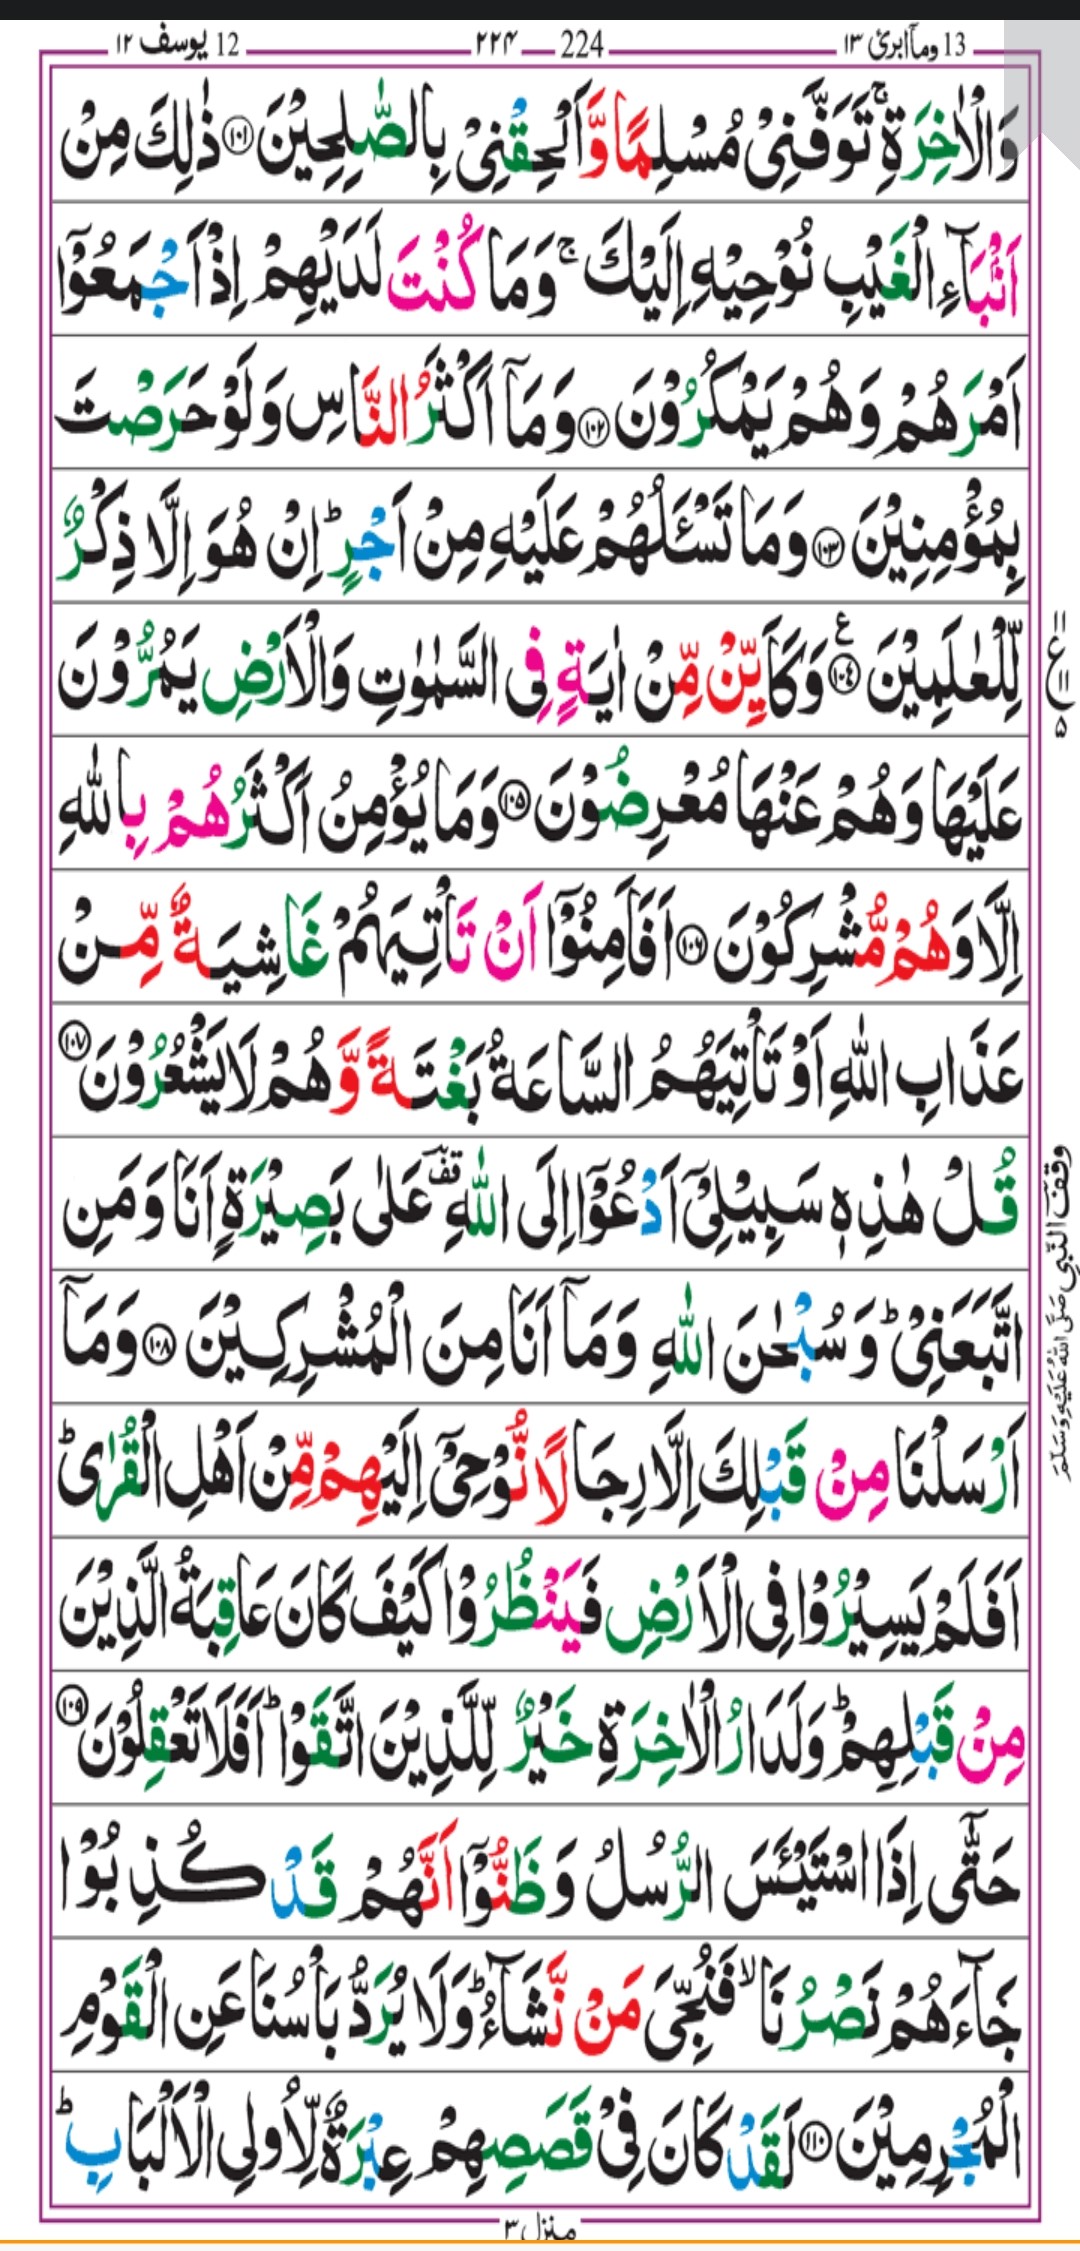 13 ومآابرئ ۱۳ 224 ۲۲۴ 12 يوسف ۱۲
وَالْاٰخِرَةِ ۚ تَوَفَّنِیْ مُسْلِمًا وَّاَلْحِقْنِیْ بِالصّٰلِحِیْنَ ۝۱۰۱ ذٰلِكَ مِنْ
اَنْۢبَآءِ الْغَیْبِ نُوْحِیْهِ اِلَیْكَ ۚ وَمَا كُنْتَ لَدَیْهِمْ اِذْ اَجْمَعُوْۤا
اَمْرَهُمْ وَهُمْ یَمْكُرُوْنَ ۝۱۰۲ وَمَاۤ اَكْثَرُ النَّاسِ وَلَوْ حَرَصْتَ
بِمُؤْمِنِیْنَ ۝۱۰۳ وَمَا تَسْـَٔلُهُمْ عَلَیْهِ مِنْ اَجْرٍ ؕ اِنْ هُوَ اِلَّا ذِكْرٌ
لِّلْعٰلَمِیْنَ ۝۱۰۴ ع وَكَاَیِّنْ مِّنْ اٰیَةٍ فِی السَّمٰوٰتِ وَالْاَرْضِ یَمُرُّوْنَ
۱۱ ع ۱۱ ۵
عَلَیْهَا وَهُمْ عَنْهَا مُعْرِضُوْنَ ۝۱۰۵ وَمَا یُؤْمِنُ اَكْثَرُهُمْ بِاللّٰهِ
اِلَّا وَهُمْ مُّشْرِكُوْنَ ۝۱۰۶ اَفَاَمِنُوْۤا اَنْ تَاْتِیَهُمْ غَاشِیَةٌ مِّنْ
عَذَابِ اللّٰهِ اَوْ تَاْتِیَهُمُ السَّاعَةُ بَغْتَةً وَّهُمْ لَا یَشْعُرُوْنَ ۝۱۰۷
قُلْ هٰذِهٖ سَبِیْلِیْۤ اَدْعُوْۤا اِلَی اللّٰهِ ؔقف عَلٰی بَصِیْرَةٍ اَنَا وَمَنِ
وقف النبی صَلَّی اللهُ عَلَیْهِ وَسَلَّمَ
اتَّبَعَنِیْ ؕ وَسُبْحٰنَ اللّٰهِ وَمَاۤ اَنَا مِنَ الْمُشْرِكِیْنَ ۝۱۰۸ وَمَاۤ
اَرْسَلْنَا مِنْ قَبْلِكَ اِلَّا رِجَالًا نُّوْحِیْۤ اِلَیْهِمْ مِّنْ اَهْلِ الْقُرٰی ؕ
اَفَلَمْ یَسِیْرُوْا فِی الْاَرْضِ فَیَنْظُرُوْا كَیْفَ كَانَ عَاقِبَةُ الَّذِیْنَ
مِنْ قَبْلِهِمْ ؕ وَلَدَارُ الْاٰخِرَةِ خَیْرٌ لِّلَّذِیْنَ اتَّقَوْا ؕ اَفَلَا تَعْقِلُوْنَ ۝۱۰۹
حَتّٰۤی اِذَا اسْتَیْـَٔسَ الرُّسُلُ وَظَنُّوْۤا اَنَّهُمْ قَدْ كُذِبُوْا
جَآءَهُمْ نَصْرُنَا ۙ فَنُجِّیَ مَنْ نَّشَآءُ ؕ وَلَا یُرَدُّ بَاْسُنَا عَنِ الْقَوْمِ
الْمُجْرِمِیْنَ ۝۱۱۰ لَقَدْ كَانَ فِیْ قَصَصِهِمْ عِبْرَةٌ لِّاُولِی الْاَلْبَابِ ؕ
منزل ۳